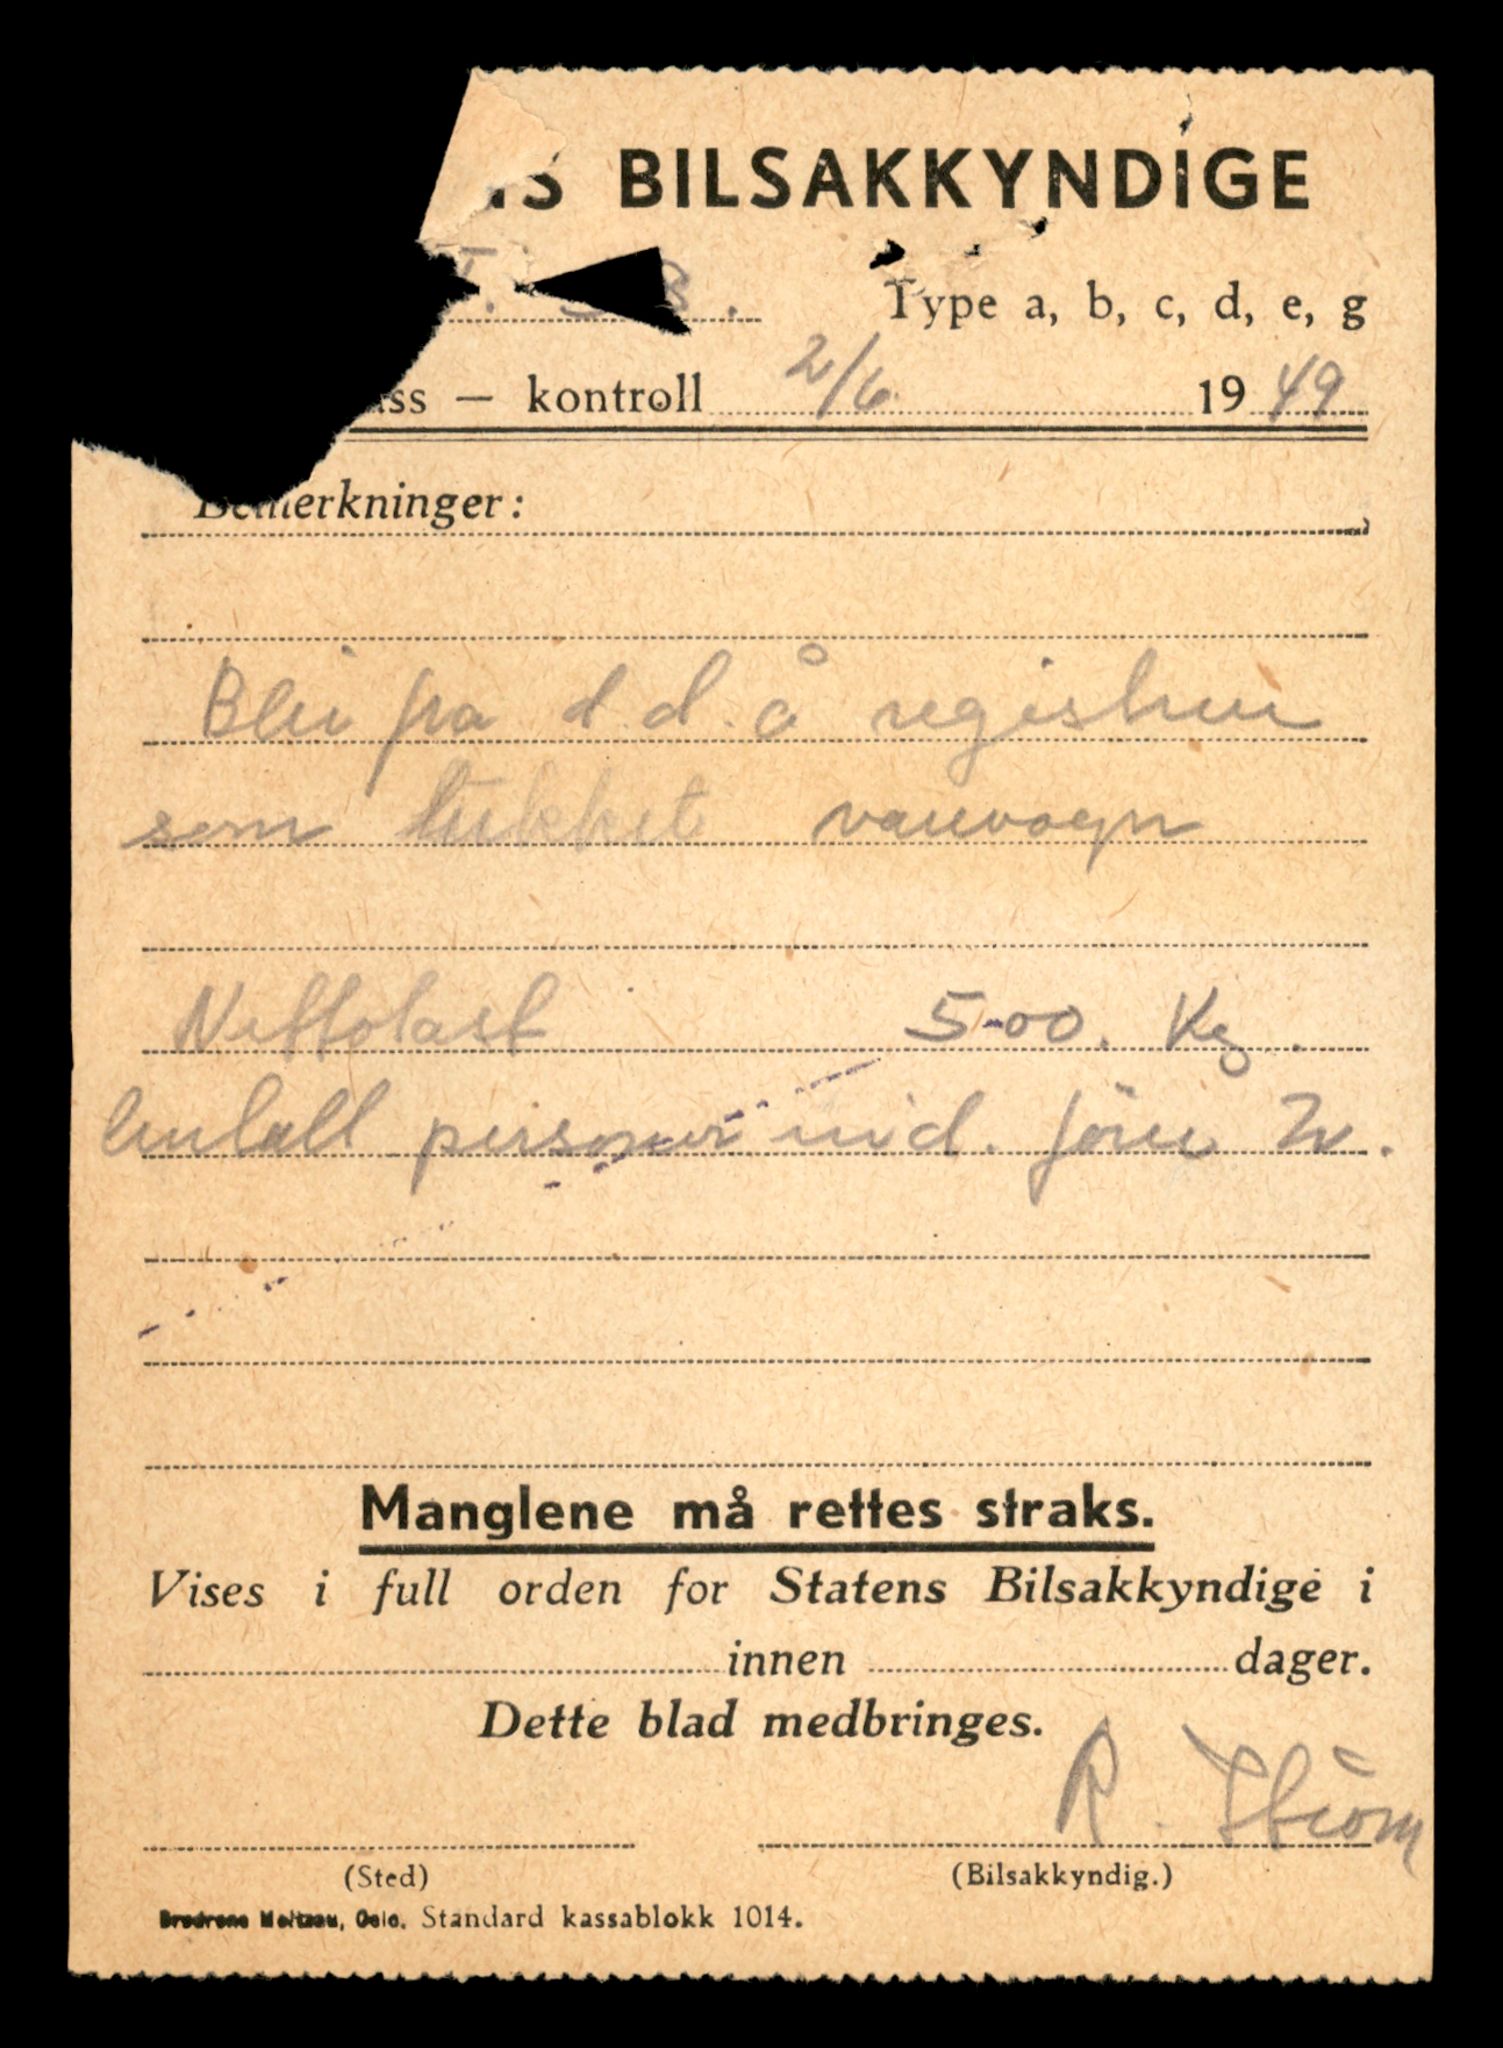 NS BILSAKKYNDIGE
T. Type a, b, c, d, e, g
ss — kontroll 2/6 1949
Bemerkninger:
Blir fra d.d. å registrere
som lukket varevogn
Nettolast 500. Kg.
Antall personer ind. fører 2.
Manglene må rettes straks.
Vises i full orden for Statens Bilsakkyndige i
innen dager.
Dette blad medbringes.
R. Strøm
(Sted) (Bilsakkyndig.)
Brødrene Meltzau, Oslo. Standard kassablokk 1014.